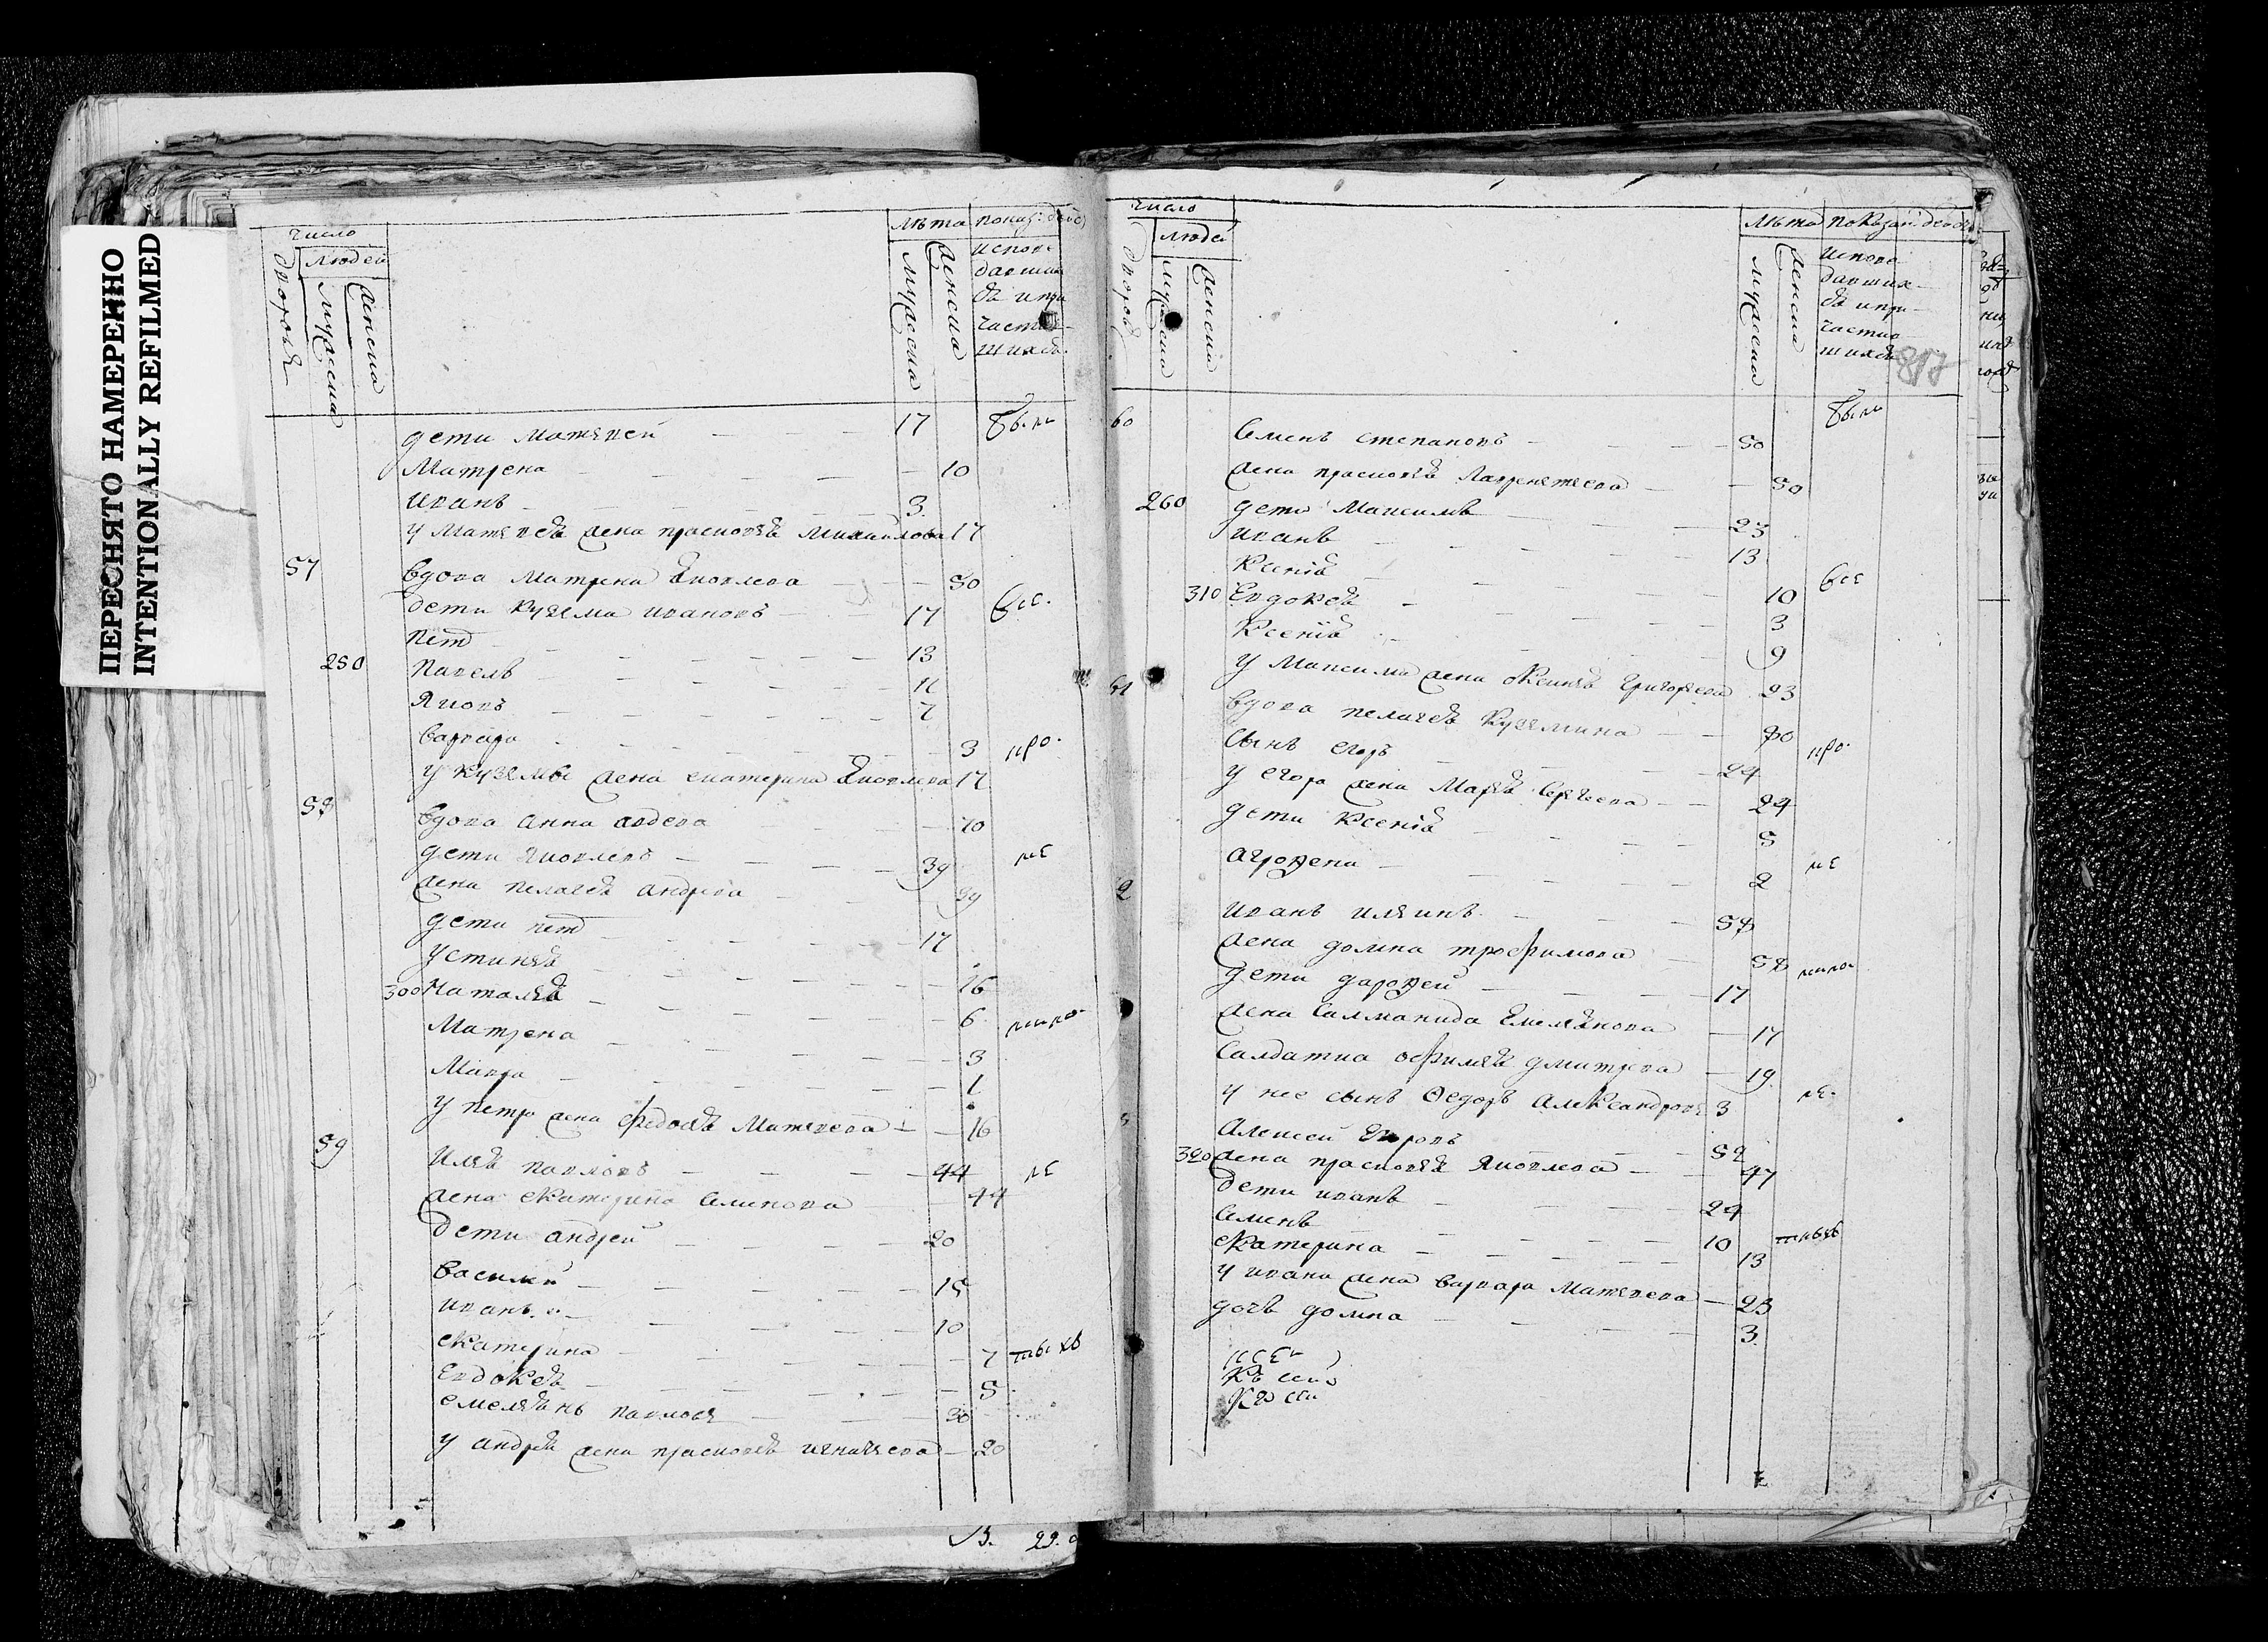 ПЕРЕСНЯТО НАМЕРЕННО
INTENTIONALLY REFILMED
число
людей
дворовъ
мужеска
женска
лѣта
мужеска
женска
показ: действ
испове
давших
ся и при
частив
шихся
дети Матвей 17 были
Матрена 10
иванъ 3
у Матвея жена прасковья Михайлова 17
57 вдова Матрена Яковлева 50
дети Кузьма ивановъ 17 все.
петр 13
250 Павелъ 11
Яковъ 7
варвара 3 про.
у Кузьмы жена екатерина Яковлева 17
58 вдова анна авдева 70
дети Яковлевъ 39 не
жена пелагея андреева 39
дети петр 17
устинья 16
300 Наталья 6
Матрена 3
Мавра 1
у петра жена федосья Матвеева 16
59 Илья павловъ 44 не
жена екатерина Семенова 44
дети андрей 20
василей 15
иванъ 10
екатерина 7 тыхъ
Евдокея 5
емельянъ павловъ 30
у андрея жена прасковья игнатьева 20
число
людей
дворовъ
мужеска
женска
лѣта
мужеска
женска
показан: действ
испове
давших
ся и при
частив
шихся
817
60 Семенъ степановъ 50 были
жена прасковья Лаврентьева 50
260 дети Максимъ 23
иванъ 13
Ксенія 10 все
310 Евдокея 3
Ксенія 9
у Максима жена оксинья григорьева 23
61 вдова пелагея Кузьмина 80
сынъ егоръ 24 про.
у егора жена Марья Сергеева 24
дети Ксенія 5
агрофена 2 не
2 иванъ ильинъ 58
жена домна трофимова 58
дети дарофей 17
жена Саламанида Емельянова 17
Салдатка офимья дмитрева 19
у нее сынъ Ѳедоръ Александровъ 3 не.
Алексей Егоровъ 52
320 жена прасковья Яковлева 47
дети иванъ 24
Семенъ 10 тыхъ
екатерина 13
у ивана жена варвара Матвеева 23
дочь домна 3